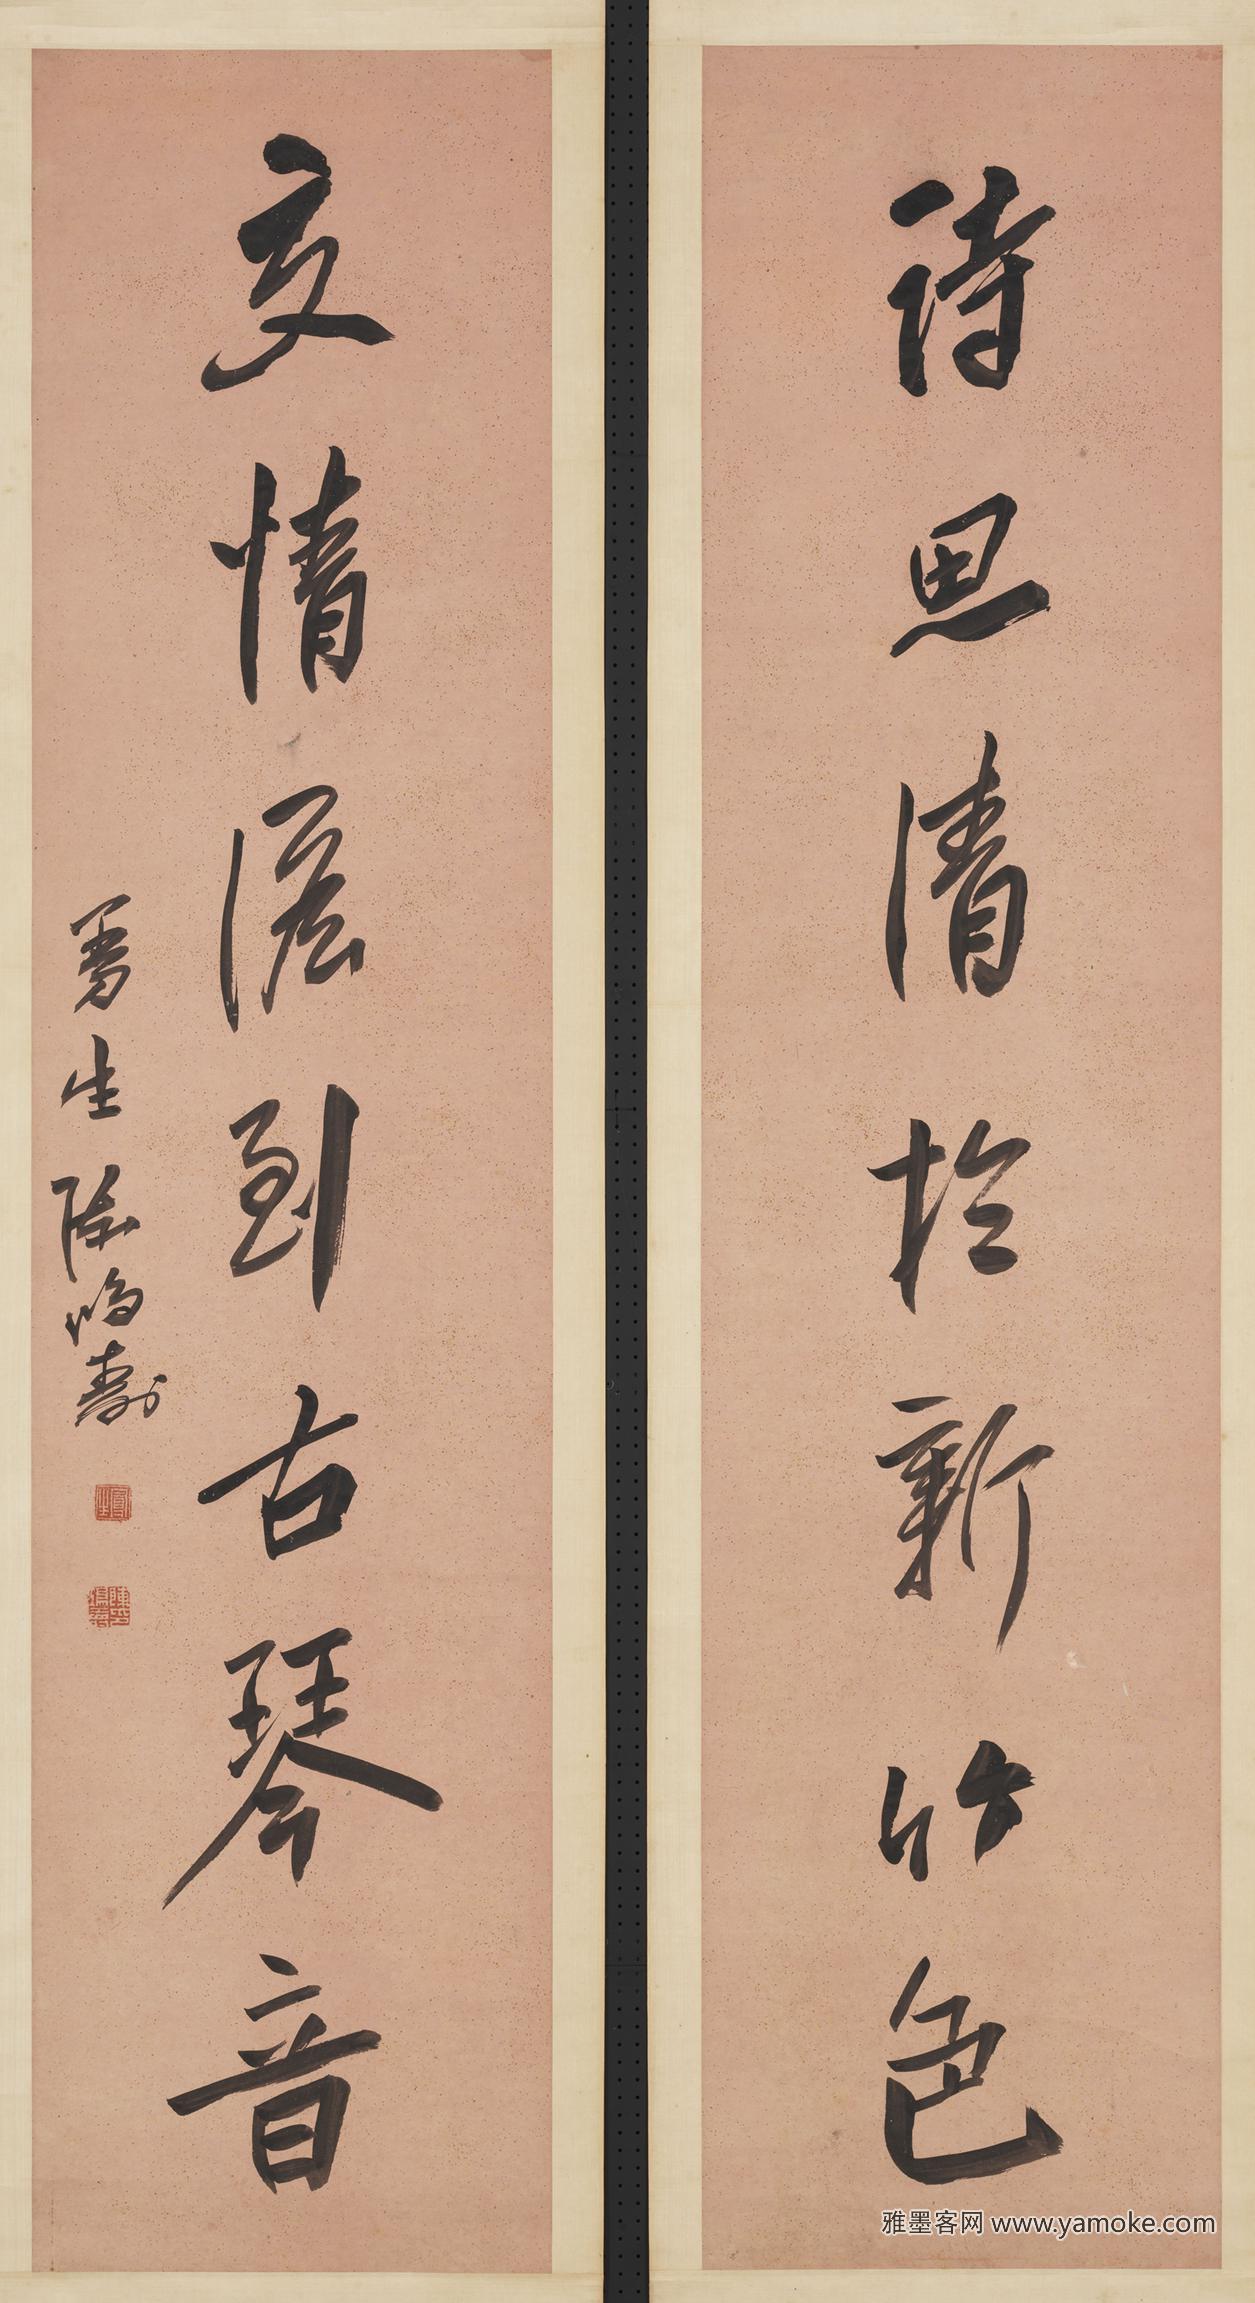 詩思清於新竹色
交情澹到古琴音
曼生陳鴻壽
雅墨客网 www.yamoke.com